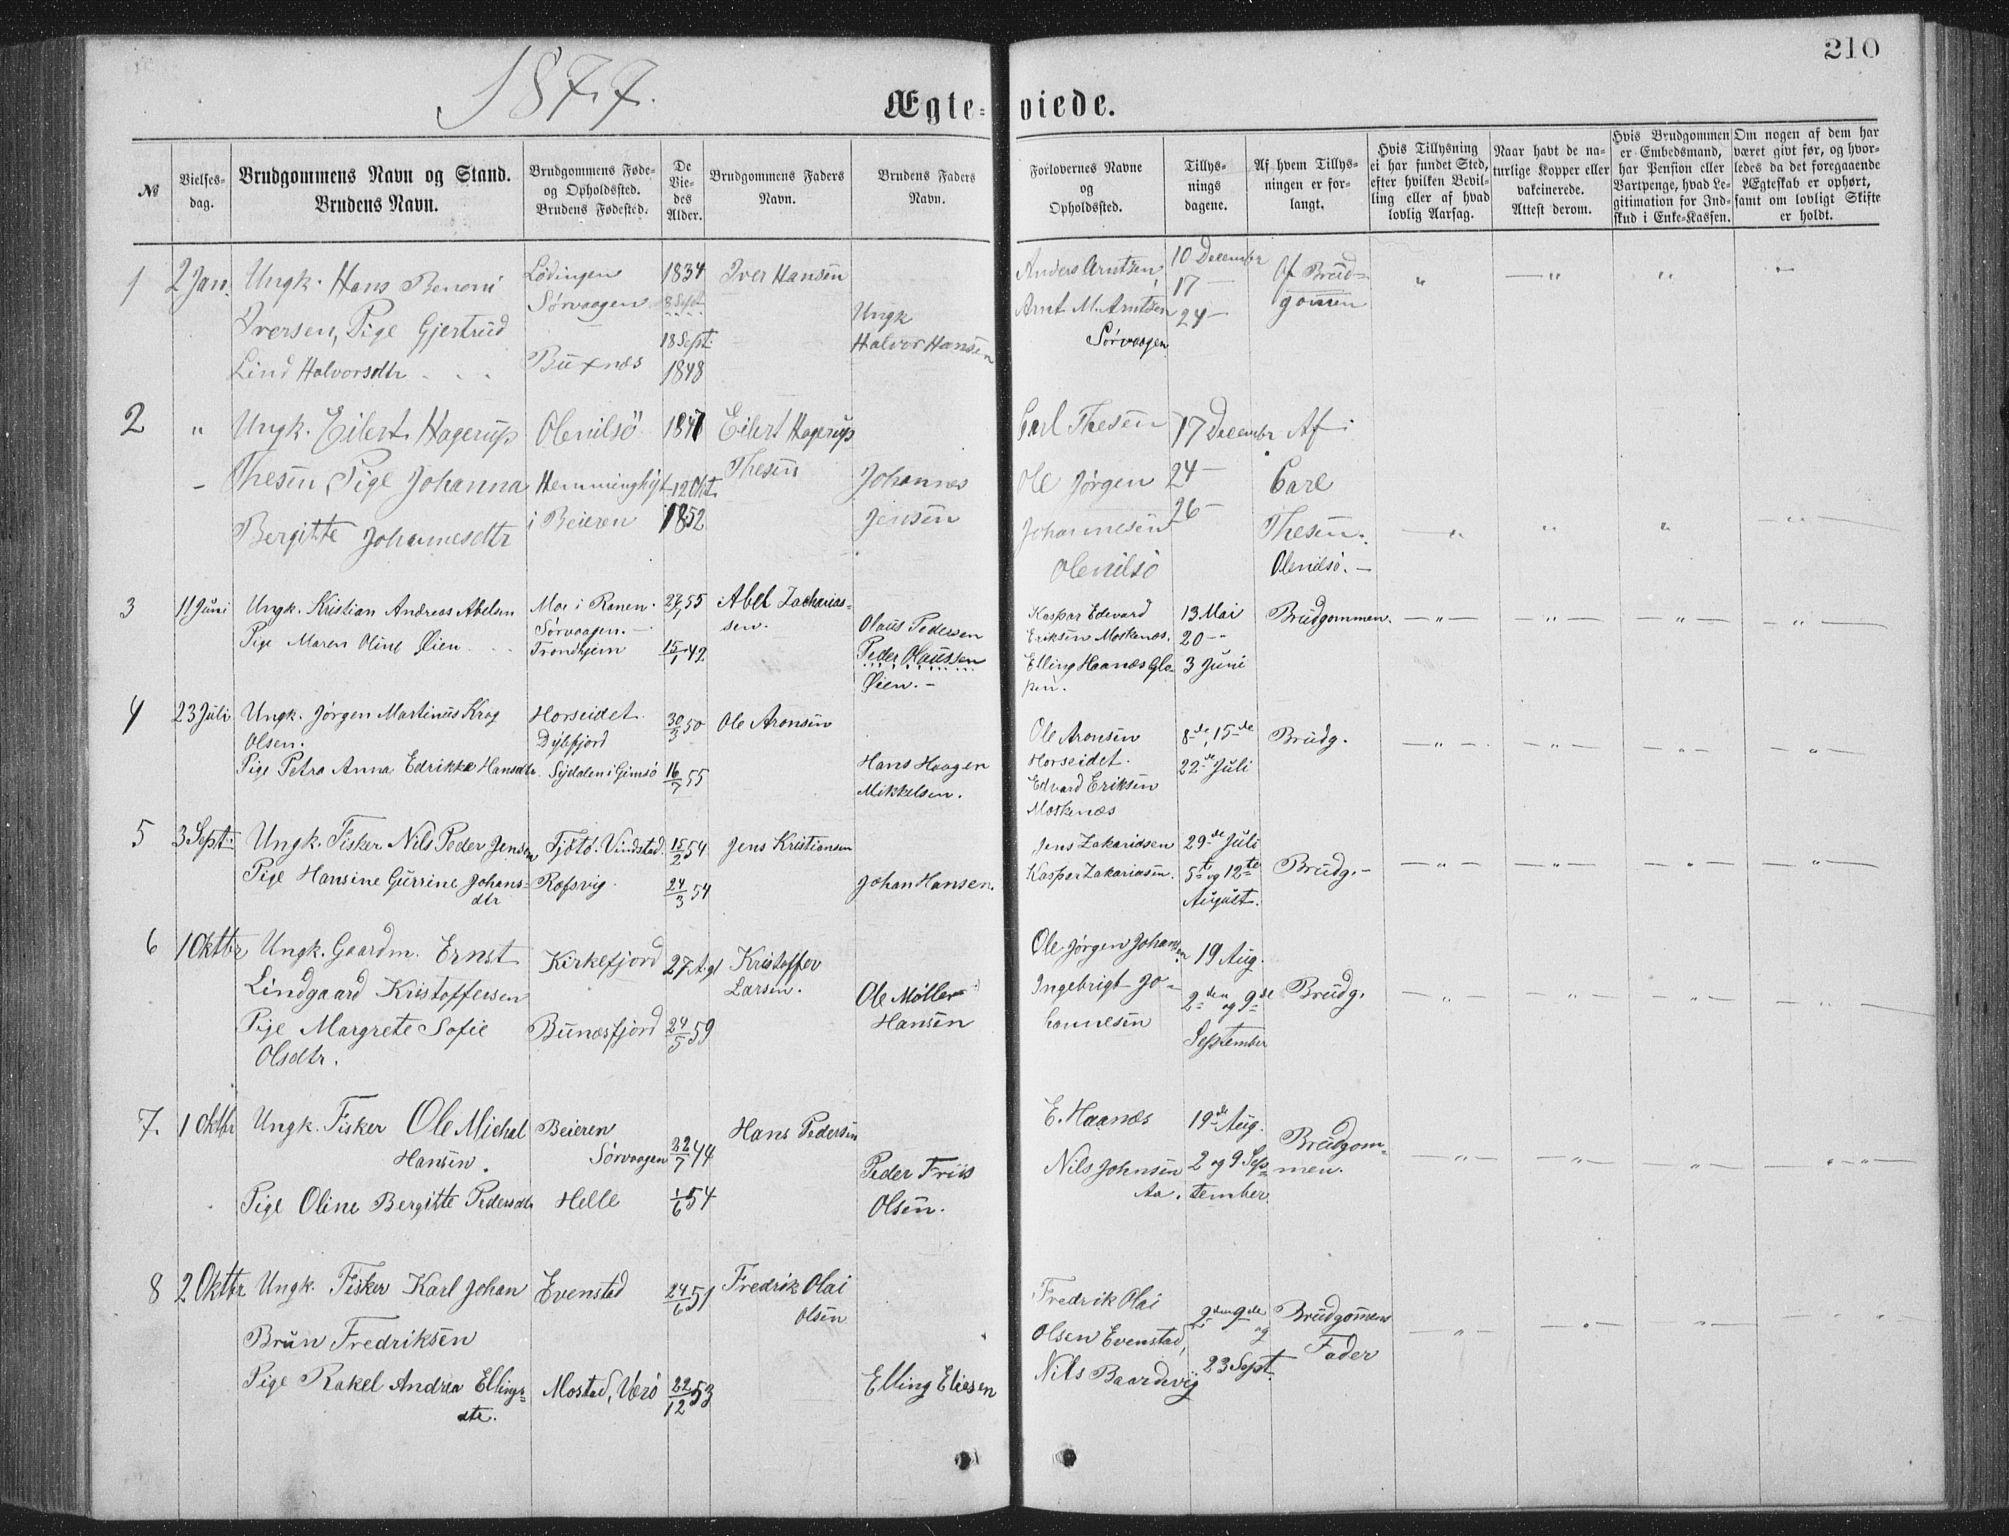 210
1877.
Ægte- viede.
№
Vielses-
dag.
Brudgommens Navn og Stand.
Brudens Navn.
Brudgommens Føde-
og Opholdssted.
Brudens Fødested.
De
Vie-
des
Alder.
Brudgommens Faders
Navn.
Brudens Faders
Navn.
Forlovernes Navne
og
Opholdssted.
Tillys-
nings
dagene.
Af hvem Tillys-
ningen er for-
langt.
Hvis Tillysning
ei har fundet Sted,
efter hvilken Bevil-
ling eller af hvad
lovlig Aarsag.
Naar havt de na-
turlige Kopper eller
vakcinerede.
Attest derom.
Hvis Brudgommen
er Embedsmand,
har Pension eller
Vartpenge, hvad Le-
gitimation for Ind-
skud i Enke-Kassen.
Om nogen af dem har
været givt før, og hvor-
ledes da det foregaaende
Ægteskab er ophørt,
samt om lovligt Skifte
er holdt.
1 2 Jan. Ungk. Hans Benoni
Iversen, Pige Gjertrud
Lind Halvorsdtr
Lødingen
Sørvaagen
Buxnæs
1834
8 Sept
18 Sept.
1848
Iver Hansen
Ungk
Halvor Hansen
Anders Arntsen,
Arnt M. Arntsen
Sørvaagen
10 December
17 —
24 —
Af Brud-
gomen
2 " Ungk. Eilert Hagerup
Thesen, Pige Johanna
Bergitte Johannesdtr
Olenilsö
i Beieren
1841
12 Okt.
1852
Eilert Hagerup
Thesen
Johannes
Jensen
Carl Thesen
Ole Jørgen
Johannesen
Olenilsö
17 Decembr
24 —
26 —
Af
Carl
Thesen.
Olenilsö. —
3 11 Juni Ungk. Kristian Andreas Abelsen
Pige Maren Oline Øien
Moe i Ranen.
Sørvaagen. —
Trondhjem
55
15/1 49
Abel Zacharias-
sen.
Olaus Pedersen
Peder Olaussen
Øien. —
Kaspar Edevard
Eriksen Moskenæs.
Elling Haanæs Gla-
pen.
13 Mai
20 —
3 Juni
Brudgommen.
4 23 Juli. Ungk. Jörgen Martinus Krog
Olsen.
Pige Petra Anna Edrikke Hansdtr.
Horseidet.
Dybfjord
Sydalen i Gimsö
30/3 50
16/7 55
Ole Aronsen
Hans Haagen
Mikkelsen.
Ole Aronsen
Horseidet.
Edvard Eriksen
Moskenæs
8de, 15de
22de Juli
Brudg.
5 3 Sept. Ungk. Fisker Nils Peder Jensen
Pige Hansine Gurrine Johans-
dtr
Tjøtö. Vindstad.
Refsvig.
15/2 54
24/3 54
Jens Kristiansen
Johan Hansen.
Jens Zakariasen
Kaspar Zakariasen.
29de Juli
5te og 12te
August.
Brudg. —
6 1 Oktbr Ungk. Gaardm. Ernst
Lindgaard Kristoffersen
Pige Margrete Sofie
Olsdtr.
Kirkefjord
Bunæsfjord
27 Aug
24/5 59
Kristoffer
Larsen.
Ole Møller
Hansen
Ole Jørgen Johansen
Ingebrigt Jo-
hannesen
19 Aug.
2den og 9de
September
Brudg.
7. 1 Oktbr Ungk. Fisker Ole Michal
Hansen.
Pige Oline Bergitte Pedersdtr
Beieren
Sørvaagen
Helle
22/7 44
1/6 54
Hans Pedersen
Peder Friis
Olsen.
E. Haanæs
Nils Johnsen
Aa.
19de Aug.
2 og 9 Sep-
tember.
Brudgom-
men.
8 2 Oktbr Ungk. Fisker Karl Johan
Brun Fredriksen
Pige Rakel Andrea Ellings-
dtr.
Evenstad
Mostad, Værö
24/6 51
22/12 53
Fredrik Olai
Olsen
Elling Eliesen
Fredrik Olai
Olsen Evenstad,
Nils Baardsvig
2den 9de
og
23 Sept.
Brudgomens
Fader